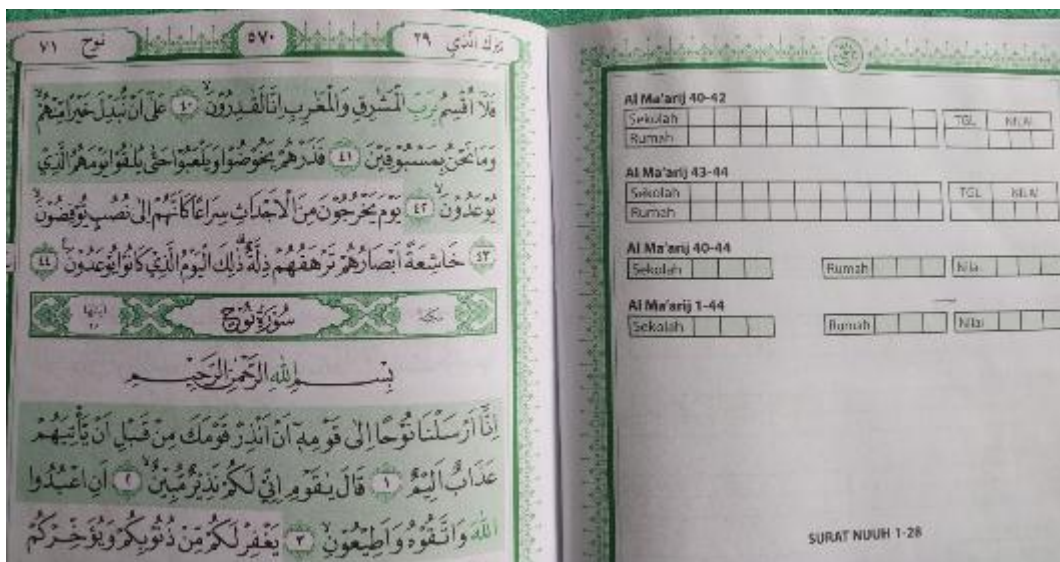 نوح ٧١
٥٧٠
تبرك الذي ٢٩
فَلَا أُقْسِمُ بِرَبِّ الْمَشٰرِقِ وَالْمَغٰرِبِ اِنَّا لَقٰدِرُوْنَۙ ٤٠ عَلٰٓى اَنْ نُّبَدِّلَ خَيْرًا مِّنْهُمْۙ
وَمَا نَحْنُ بِمَسْبُوْقِيْنَ ٤١ فَذَرْهُمْ يَخُوْضُوْا وَيَلْعَبُوْا حَتّٰى يُلٰقُوْا يَوْمَهُمُ الَّذِيْ
يُوْعَدُوْنَۙ ٤٢ يَوْمَ يَخْرُجُوْنَ مِنَ الْاَجْدَاثِ سِرَاعًا كَاَنَّهُمْ اِلٰى نُصُبٍ يُّوْفِضُوْنَۙ
٤٣ خَاشِعَةً اَبْصَارُهُمْ تَرْهَقُهُمْ ذِلَّةٌ ۗذٰلِكَ الْيَوْمُ الَّذِيْ كَانُوْا يُوْعَدُوْنَ ٤٤
مكية
سُوْرَةُ نُوْحٍ
اياتها ٢٨
بِسْمِ اللّٰهِ الرَّحْمٰنِ الرَّحِيْمِ
اِنَّآ اَرْسَلْنَا نُوْحًا اِلٰى قَوْمِهٖٓ اَنْ اَنْذِرْ قَوْمَكَ مِنْ قَبْلِ اَنْ يَّأْتِيَهُمْ
عَذَابٌ اَلِيْمٌ ١ قَالَ يٰقَوْمِ اِنِّيْ لَكُمْ نَذِيْرٌ مُّبِيْنٌۙ ٢ اَنِ اعْبُدُوا
اللّٰهَ وَاتَّقُوْهُ وَاَطِيْعُوْنِۙ ٣ يَغْفِرْ لَكُمْ مِّنْ ذُنُوْبِكُمْ وَيُؤَخِّرْكُمْ
Al Ma'arij 40-42
Sekolah TGL NILAI
Rumah
Al Ma'arij 43-44
Sekolah TGL NILAI
Rumah
Al Ma'arij 40-44
Sekolah Rumah Nilai
Al Ma'arij 1-44
Sekolah Rumah Nilai
SURAT NUUH 1-28